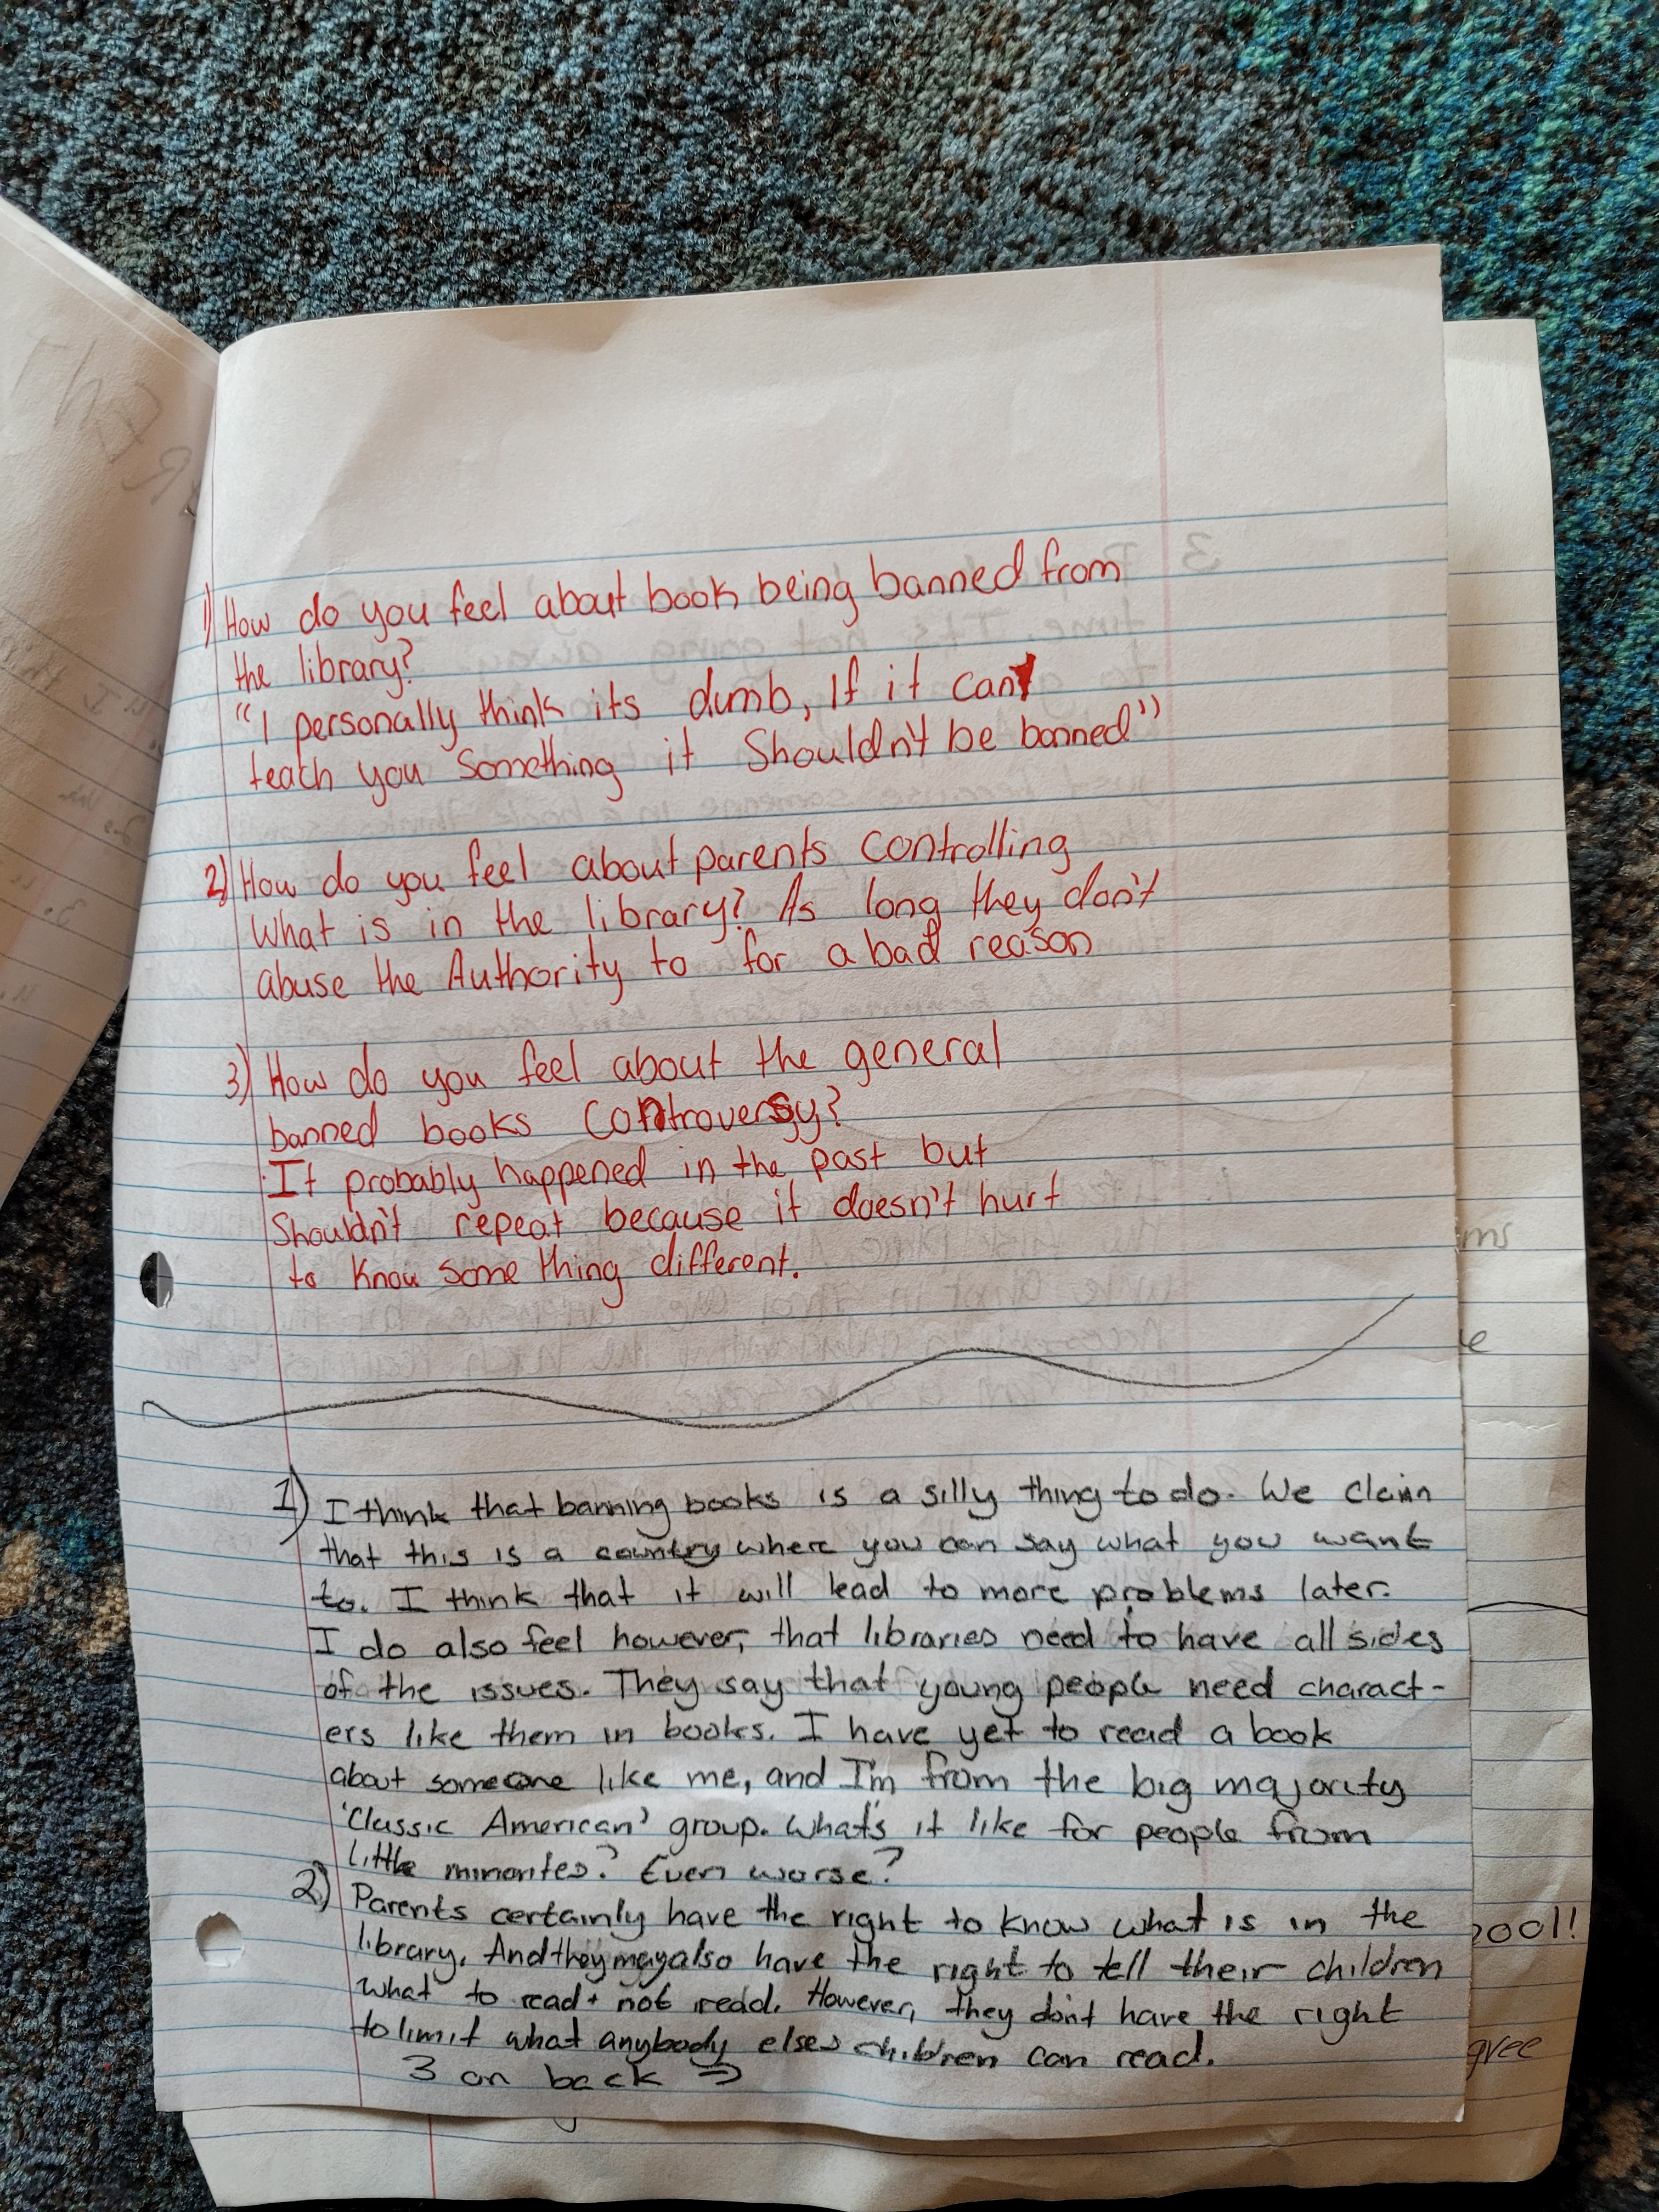 1) How do you feel about book being banned from
the library?
"I personally think its dumb, If it can
teach you Something it Shouldn't be banned"
2) How do you feel about parents controlling
What is in the library? As long they don't
abuse the Authority to for a bad reason
3) How do you feel about the general
banned books controversy?
It probably happened in the past but
Shouldn't repeat because it doesn't hurt
to know some thing different.
1) I think that banning books is a silly thing to do. We claim
that this is a country where you can say what you want
to. I think that it will lead to more problems later.
I do also feel however, that libraries need to have all sides
of the issues. They say that young people need charact-
ers like them in books. I have yet to read a book
about someone like me, and I'm from the big majority
'Classic American' group. What's it like for people from
little minorites? Even worse?
2) Parents certainly have the right to know what is in the
library. And they may also have the right to tell their children
what to read + not redd. However, they don't have the right
to limit what anybody elses children can read.
3 on back →
ool!
gree